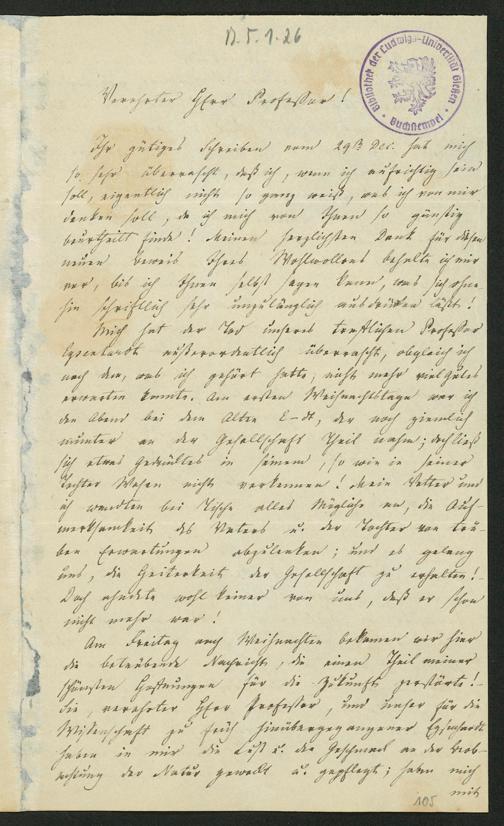 D. 5. 1. 26
Bibliothek der Ludwigs-Universität Gießen
Buchstempel
Verehrter Herr Professor!
Ihr gütiges Schreiben vom 29. Dec. hat mich
so sehr überrascht, daß ich, wenn ich aufrichtig sein
soll, eigentlich nicht so ganz weiß, was ich von mir
denken soll, da ich mich von Ihnen so günstig
beurtheilt finde! Meinen herzlichsten Dank für diesen
neuen Beweis Ihres Wohlwollens behalte ich mir
vor, bis ich Ihnen selbst sagen kann, was sich ohne-
hin schriftlich sehr unzulänglich ausdrücken läßt!
Mich hat der Tod unseres trefflichen Professor
Eysenhardt außerordentlich überrascht, obgleich ich
nach dem, was ich gehört hatte, nicht mehr viel Gutes
erwarten konnte. Am ersten Weihnachtstage war ich
den Abend bei dem Alten E-dt, der noch ziemlich
munter an der Gesellschaft Theil nahm; doch ließ
sich etwas Gedrücktes in seinem, so wie in seiner
Tochter Wesen nicht verkennen! Mein Vetter und
ich wandten bei Tische alles Mögliche an, die Auf-
merksamkeit des Vaters u. der Tochter von trü-
ben Erwartungen abzulenken; und es gelang
uns, die Heiterkeit der Gesellschaft zu erhalten!
Doch ahndete wohl keiner von uns, daß er schon
nicht mehr war!
Am Freitag nach Weihnachten bekamen wir hier
die betrübende Nachricht, die einen Theil meiner
schönsten Hoffnungen für die Zukunft zerstörte!
Sie, verehrter Herr Professor, und unser für die
Wissenschaft zu früh hinübergegangener Eysenhardt
haben in mir die Lust u. die Geschmack an der Beob-
achtung der Natur geweckt u. gepflegt; haben mich
mit
105